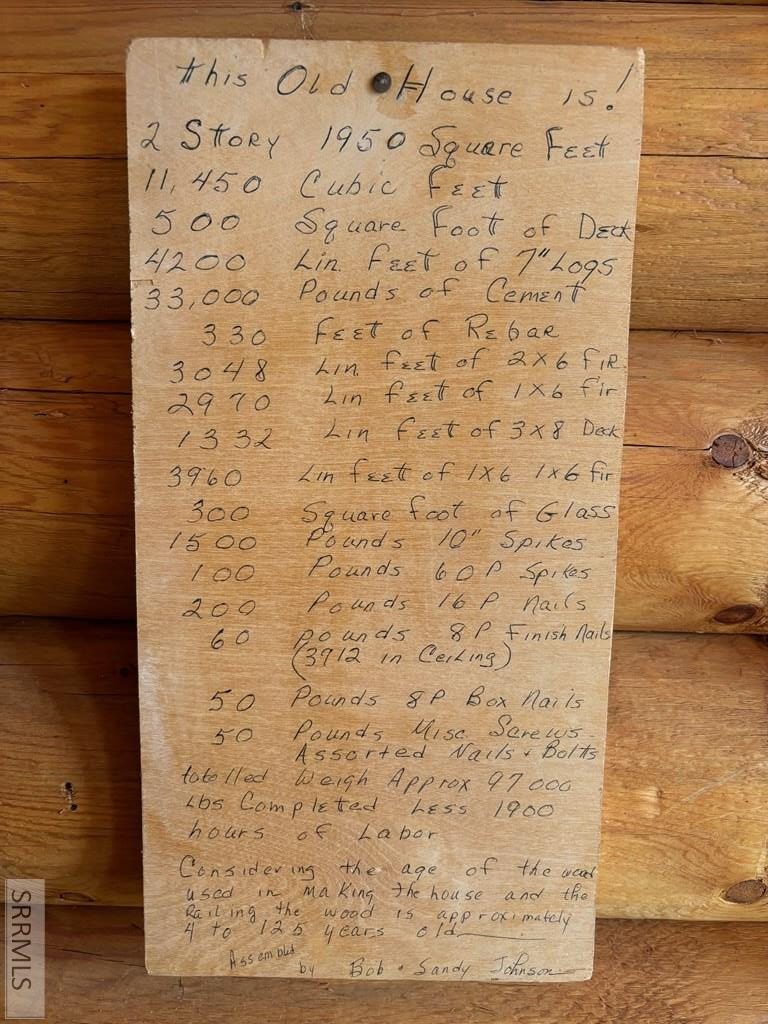 this Old House is!
2 Story 1950 Square Feet
11,450 Cubic Feet
500 Square Foot of Deck
4200 Lin. Feet of 7" Logs
33,000 Pounds of Cement
330 Feet of Rebar
3048 Lin. feet of 2x6 Fir
2970 Lin feet of 1x6 Fir
1332 Lin feet of 3x8 Deck
3960 Lin feet of 1x6 1x6 fir
300 Square foot of Glass
1500 Pounds 10" Spikes
100 Pounds 60P Spikes
200 Pounds 16P Nails
60 pounds 8P Finish Nails
(3912 in Ceiling)
50 Pounds 8P Box Nails
50 Pounds Misc Screws-
Assorted Nails + Bolts
totelled Weigh Approx 97000
Lbs Completed Less 1900
hours of Labor
Considering the age of the wood
used in making the house and the
Railing the wood is approximately
4 to 125 years old.
Assembled by Bob + Sandy Johnson
SRRMLS